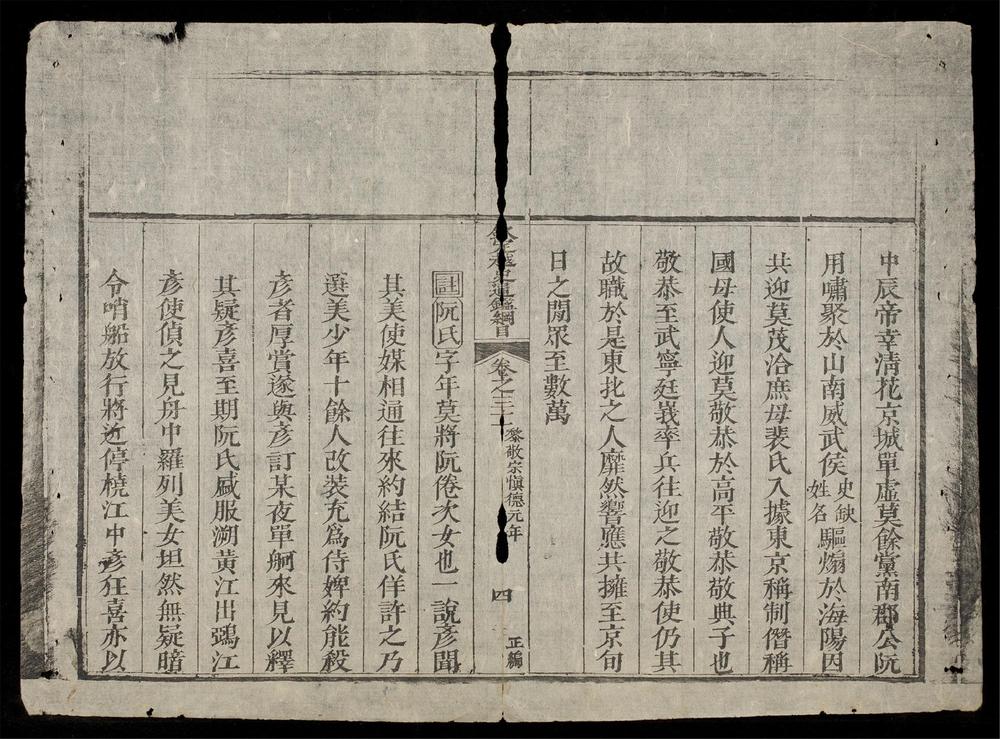 中辰帝幸淸花京城單虛莫餘黨南郡公阮
用嘯聚於山南威武侯史缺姓名驅煽於海陽因
共迎莫茂洽庶母裴氏入據東京稱制僭稱
國母使人迎莫敬恭於高平敬恭敬典子也
敬恭至武寧廷峩率兵往迎之敬恭使仍其
故職於是東北之人靡然響應共擁至京旬
日之閒眾至數萬
欽定越史通鑑綱目 卷之三十一 黎敬宗愼德元年 四 正編
註阮氏字年莫將阮倦次女也一說彥聞
其美使媒相通往來約結阮氏佯許之乃
選美少年十餘人改裝充爲侍婢約能殺
彥者厚賞遂與彥訂某夜單舸來見以釋
其疑彥喜至期阮氏盛服溯黃江出鵶江
彥使偵之見舟中羅列美女坦然無疑暗
令哨船放行將近停橈江中彥狂喜亦以